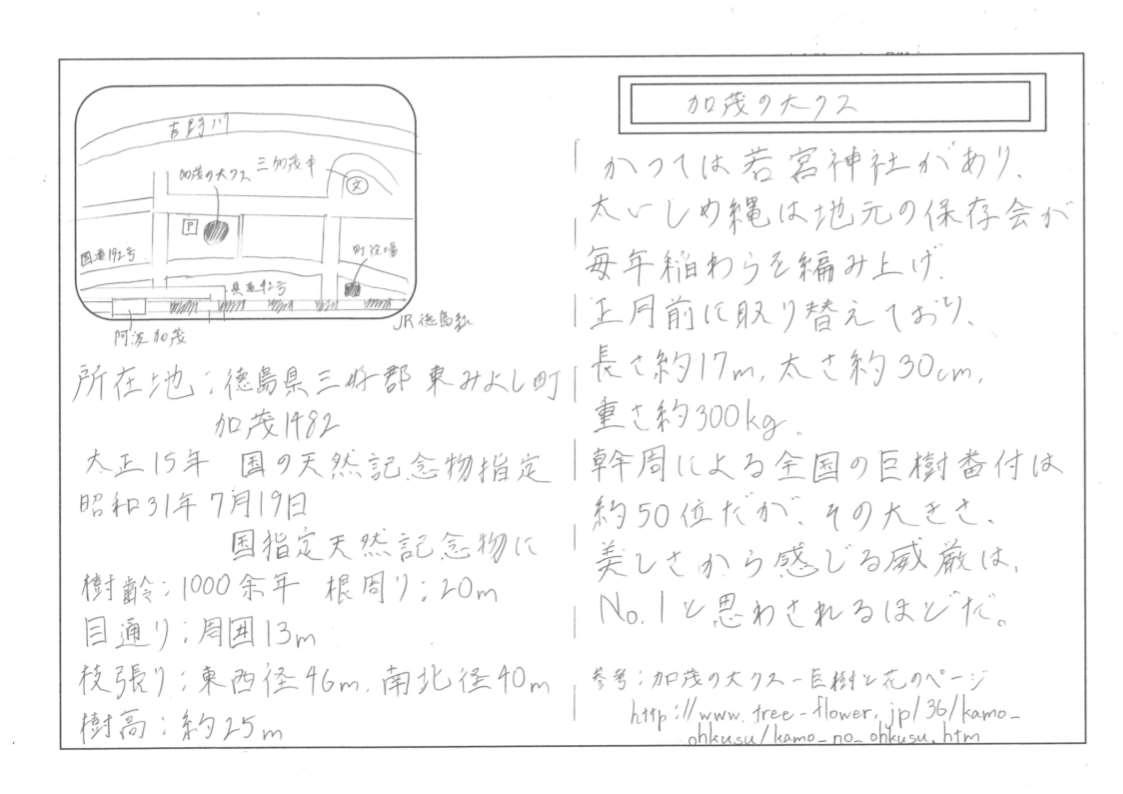 加茂の大クス
吉野川
加茂の大クス
三加茂中
文
P
国道192号
町役場
県道
号
JR徳島
阿波加茂
所在地:徳島県三好郡東みよし町
加茂1482
大正15年 国の天然記念物指定
昭和31年7月19日
国指定天然記念物に
樹齢:1000余年 根周り:20m
目通り:周囲13m
枝張り:東西径46m、南北径40m
樹高:約25m
かつては若宮神社があり、
太いしめ縄は地元の保存会が
毎年稲わらを編み上げ、
正月前に取り替えており、
長さ約17m、太さ約30cm、
重さ約300kg。
幹周による全国の巨樹番付は
約50位だが、その大きさ、
美しさから感じる威厳は、
No.1と思わされるほどだ。
参考:加茂の大クス-巨樹と花のページ
http://www.tree-flower.jp/36/kamo_
ohkusu/kamo_no_ohkusu.htm